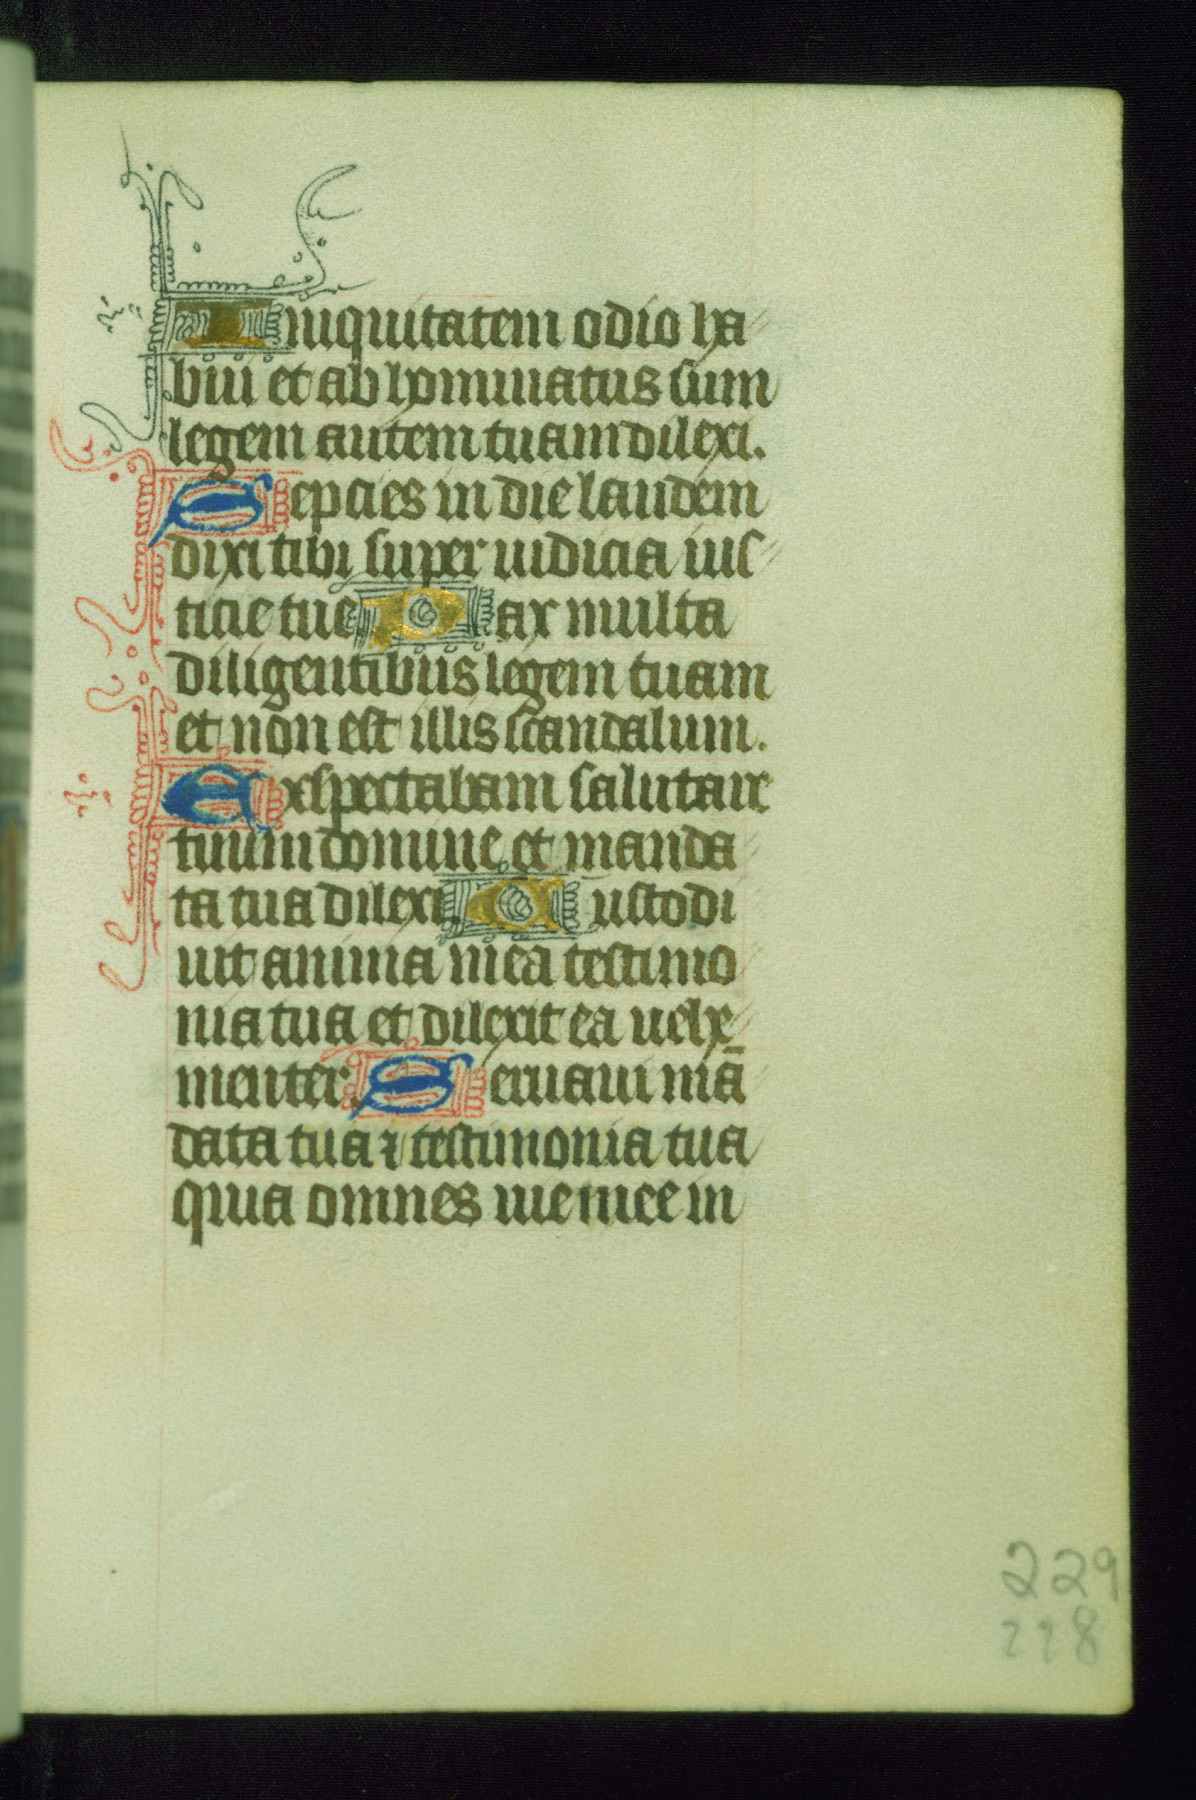 Iniquitatem odio ha
bui et abhominatus sum
legem autem tuam dilexi.
Sepcies in die laudem
dixi tibi super iudicia ius
ticie tue Pax multa
diligentibus legem tuam
et non est illis scandalum.
Exspectabam salutare
tuum domine et manda
ta tua dilexi. Custodi
uit anima mea testimo
nia tua et dilexit ea vehe
menter. Seruaui mā
data tua ⁊ testimonia tua
quia omnes vie mee in
229
228